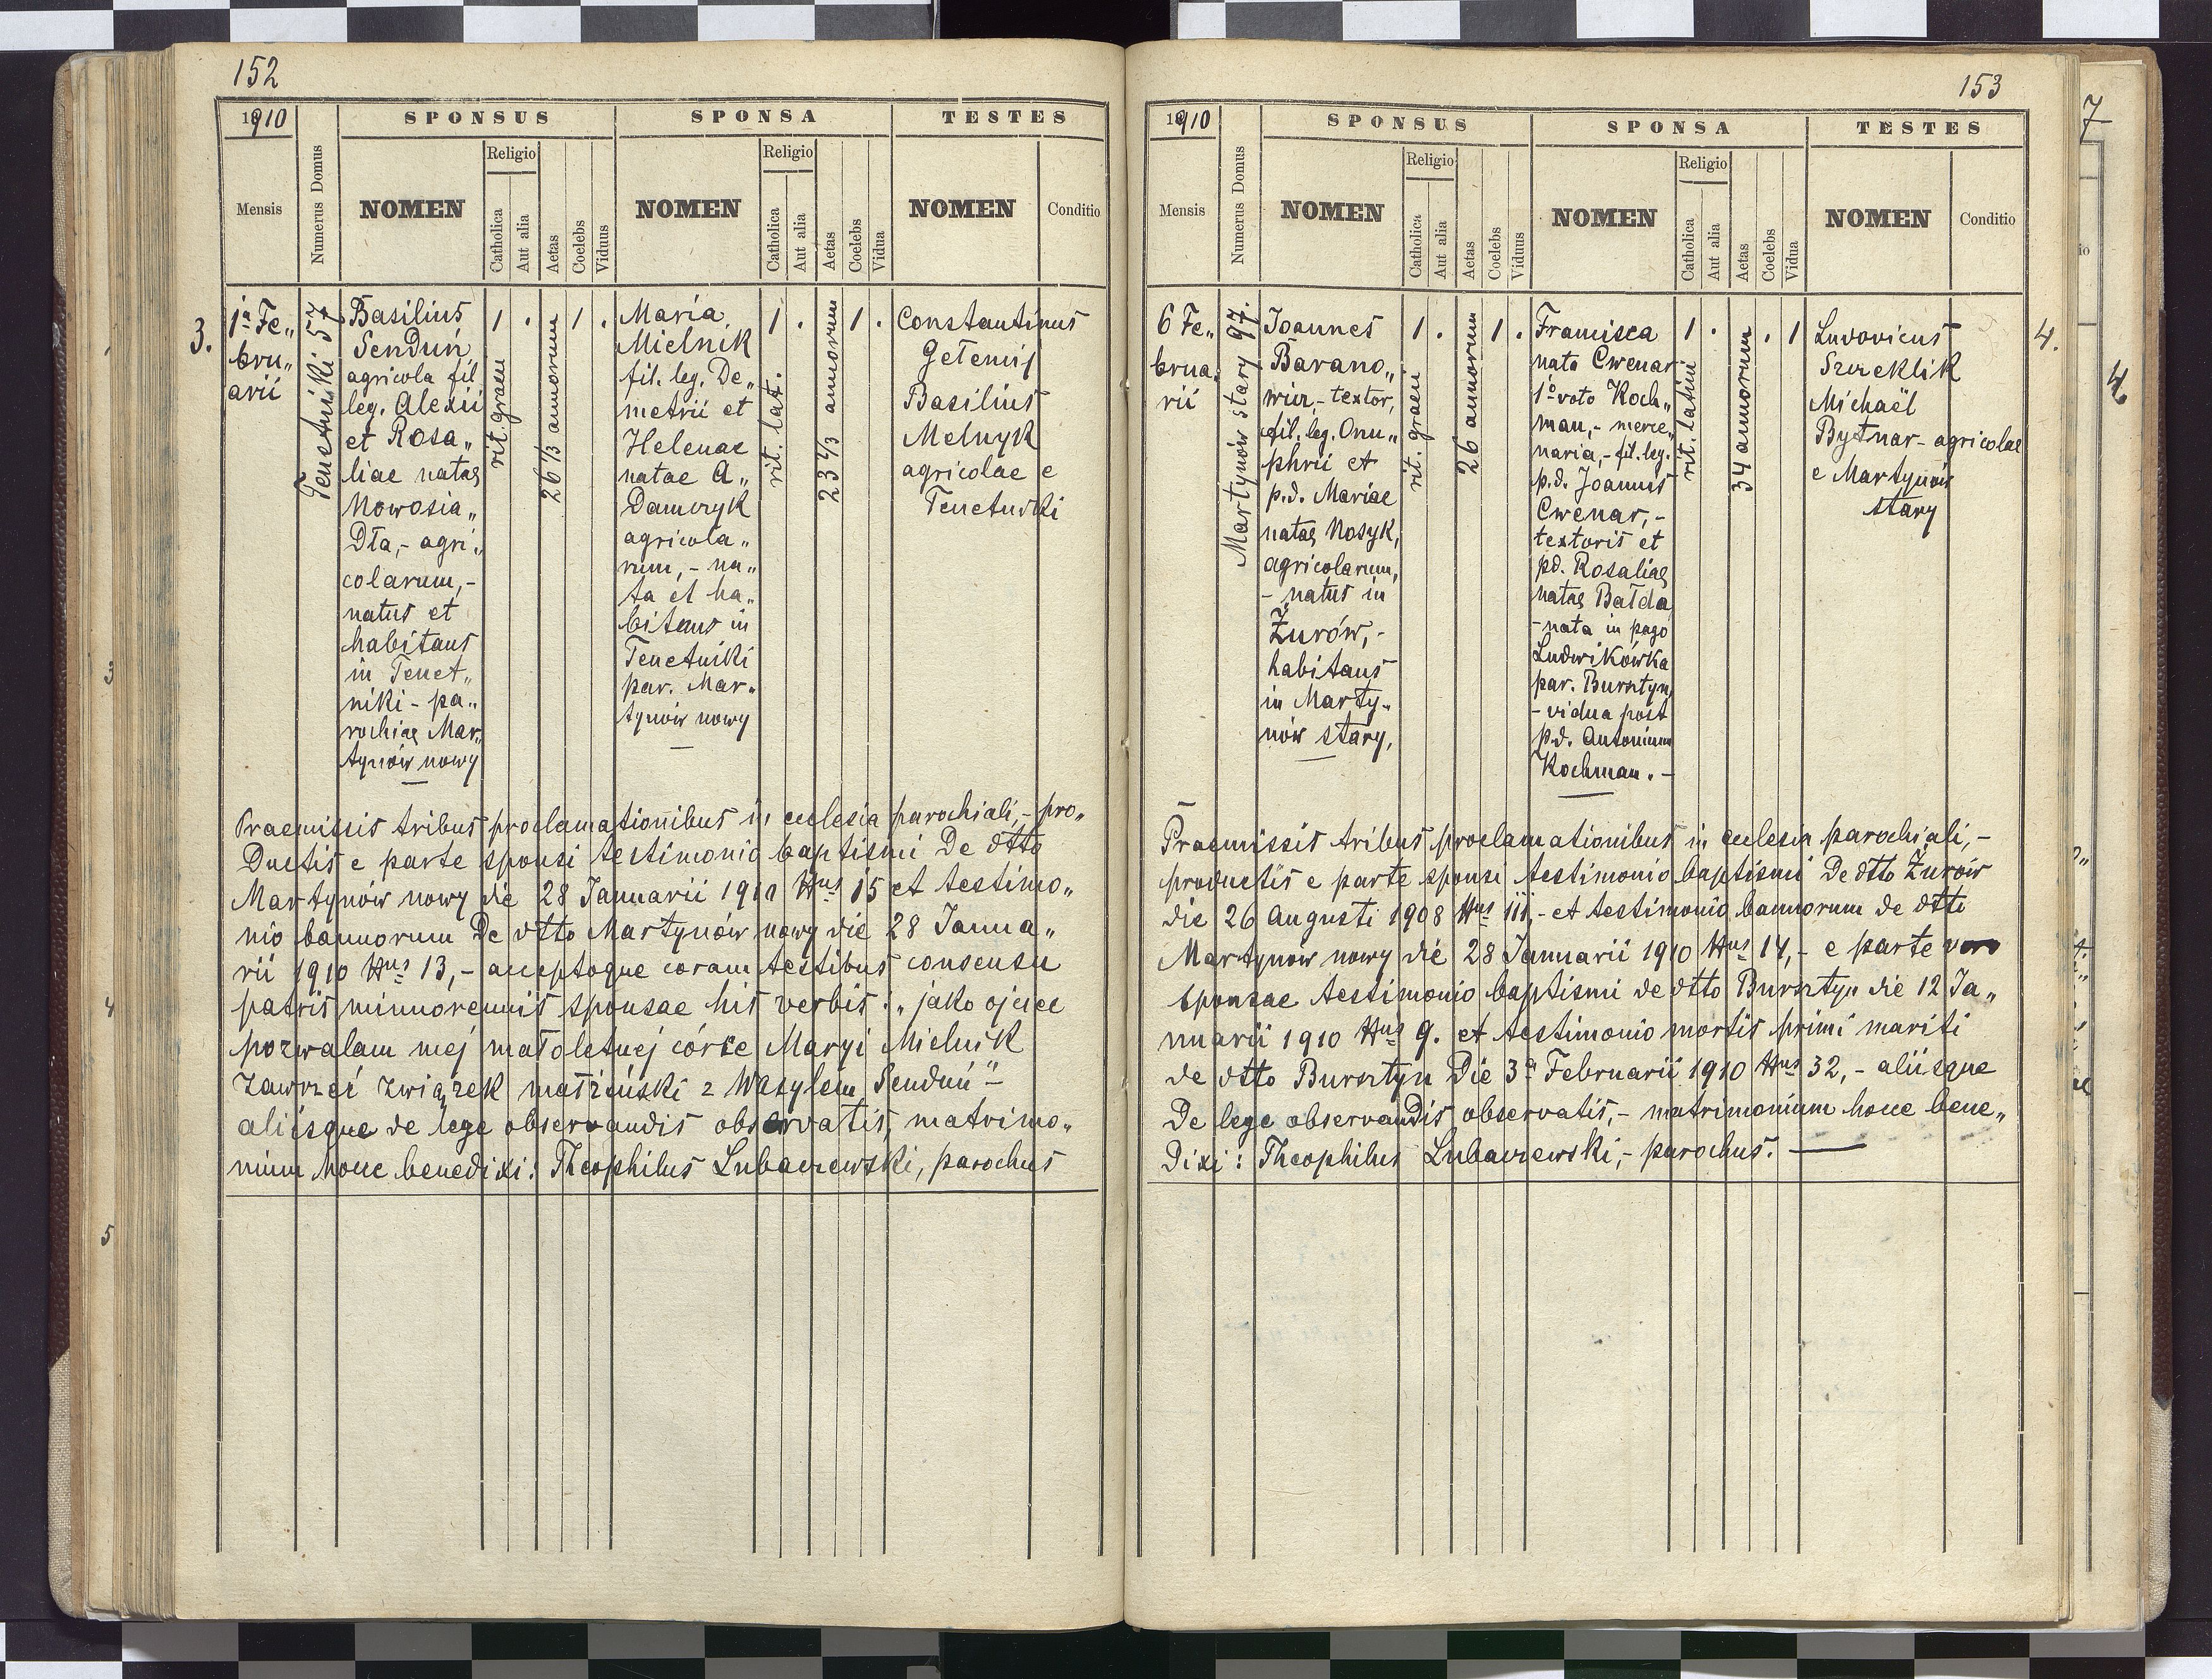 152
1910
SPONSUS
SPONSA
TESTES
Mensis
Numerus Domus
NOMEN
Religio
Catholica
Aut alia
Aetas
Coelebs
Viduus
NOMEN
Religio
Catholica
Aut alia
Aetas
Coelebs
Vidua
NOMEN
Conditio
3.
1a Fe„
bru„
arii
Tenetniki 57
Basilius
Senduń
agricola fil.
leg. Alexii
et Rosa„
liae natae
Nowosia„
dła,- agri„
colarum,-
natus et
habitans
in Tenet„
niki - pa„
rochiae Mar„
tynów nowy
1
.
rit graeci
26 1/3 annorum
1
.
Maria
Mielnik
fil. leg. De„
metrii et
Helenae
natae A„
damczyk
agricola„
rum,- na„
ta et ha„
bitans in
Tenetniki
par. Mar„
tynów nowy
1
.
rit. lat.
23 2/3 annorum
1
.
Constantinus
Getemij
Basilius
Melnyk
agricolae e
Tenetniki
Praemissis tribus proclamationibus in ecclesia parochiali,- pro„
ductis e parte sponsi testimonio baptismi de dtto
Martynów nowy die 28 Januarii 1910 Nus 15 et testimo„
nio bannorum de dtto Martynów nowy die 28 Janua„
rii 1910 Nus 13,- acceptoque coram testibus consensu
patris minorennis sponsae his verbis: „jako ojciec
pozwalam mej małoletnej córce Maryi Mielnik
zawrzeć związek małżeński z Wasylem Senduń"-
aliisque de lege observandis observatis, matrimo„
nium hocce benedixi: Theophilus Lubaczewski, parochus
153
1910
SPONSUS
SPONSA
TESTES
Mensis
Numerus Domus
NOMEN
Religio
Catholica
Aut alia
Aetas
Coelebs
Viduus
NOMEN
Religio
Catholica
Aut alia
Aetas
Coelebs
Vidua
NOMEN
Conditio
4.
6 Fe„
brua„
rii
Martynów stary 97.
Joannes
Barano„
wicz,- textor,
fil. leg. Onu„
phrii et
p.d. Mariae
natae Nosyk,
agricolarum,
- natus in
Żurów,-
habitans
in Marty„
nów stary,
1
.
rit. graeci
26 annorum
1
.
Francisca
nata Cwenar
1o voto Koch„
man,- merce„
naria,- fil. leg.
p.d. Joannis
Cwenar,-
textoris et
pd. Rosaliae
natae Bałda
- nata in pago
Ludwikówka
par. Bursztyn,
- vidua post
p.d. Antonium
Kochman.-
1
.
rit. latini
34 annorum
.
1
Ludovicus
Szreklik
Michaël
Bytnar - agricolae
e Martynów
stary
Praemissis tribus proclamationibus in ecclesia parochiali,-
productis e parte sponsi testimonio baptismi de dtto Żurów
die 26 Augusti 1908 Nus 111,- et testimonio bannorum de dtto
Martynów nowy die 28 Januarii 1910 Nus 14,- e parte vero
sponsae testimonio baptismi de dtto Bursztyn die 12 Ja„
nuarii 1910 Nus 9. et testimonio mortis primi mariti
de dtto Bursztyn die 3a Februarii 1910 Nus 32,- aliisque
de lege observandis observatis,- matrimonium hocce bene„
dixi: Theophilus Lubaczewski,- parochus.
3
4
5
7
4